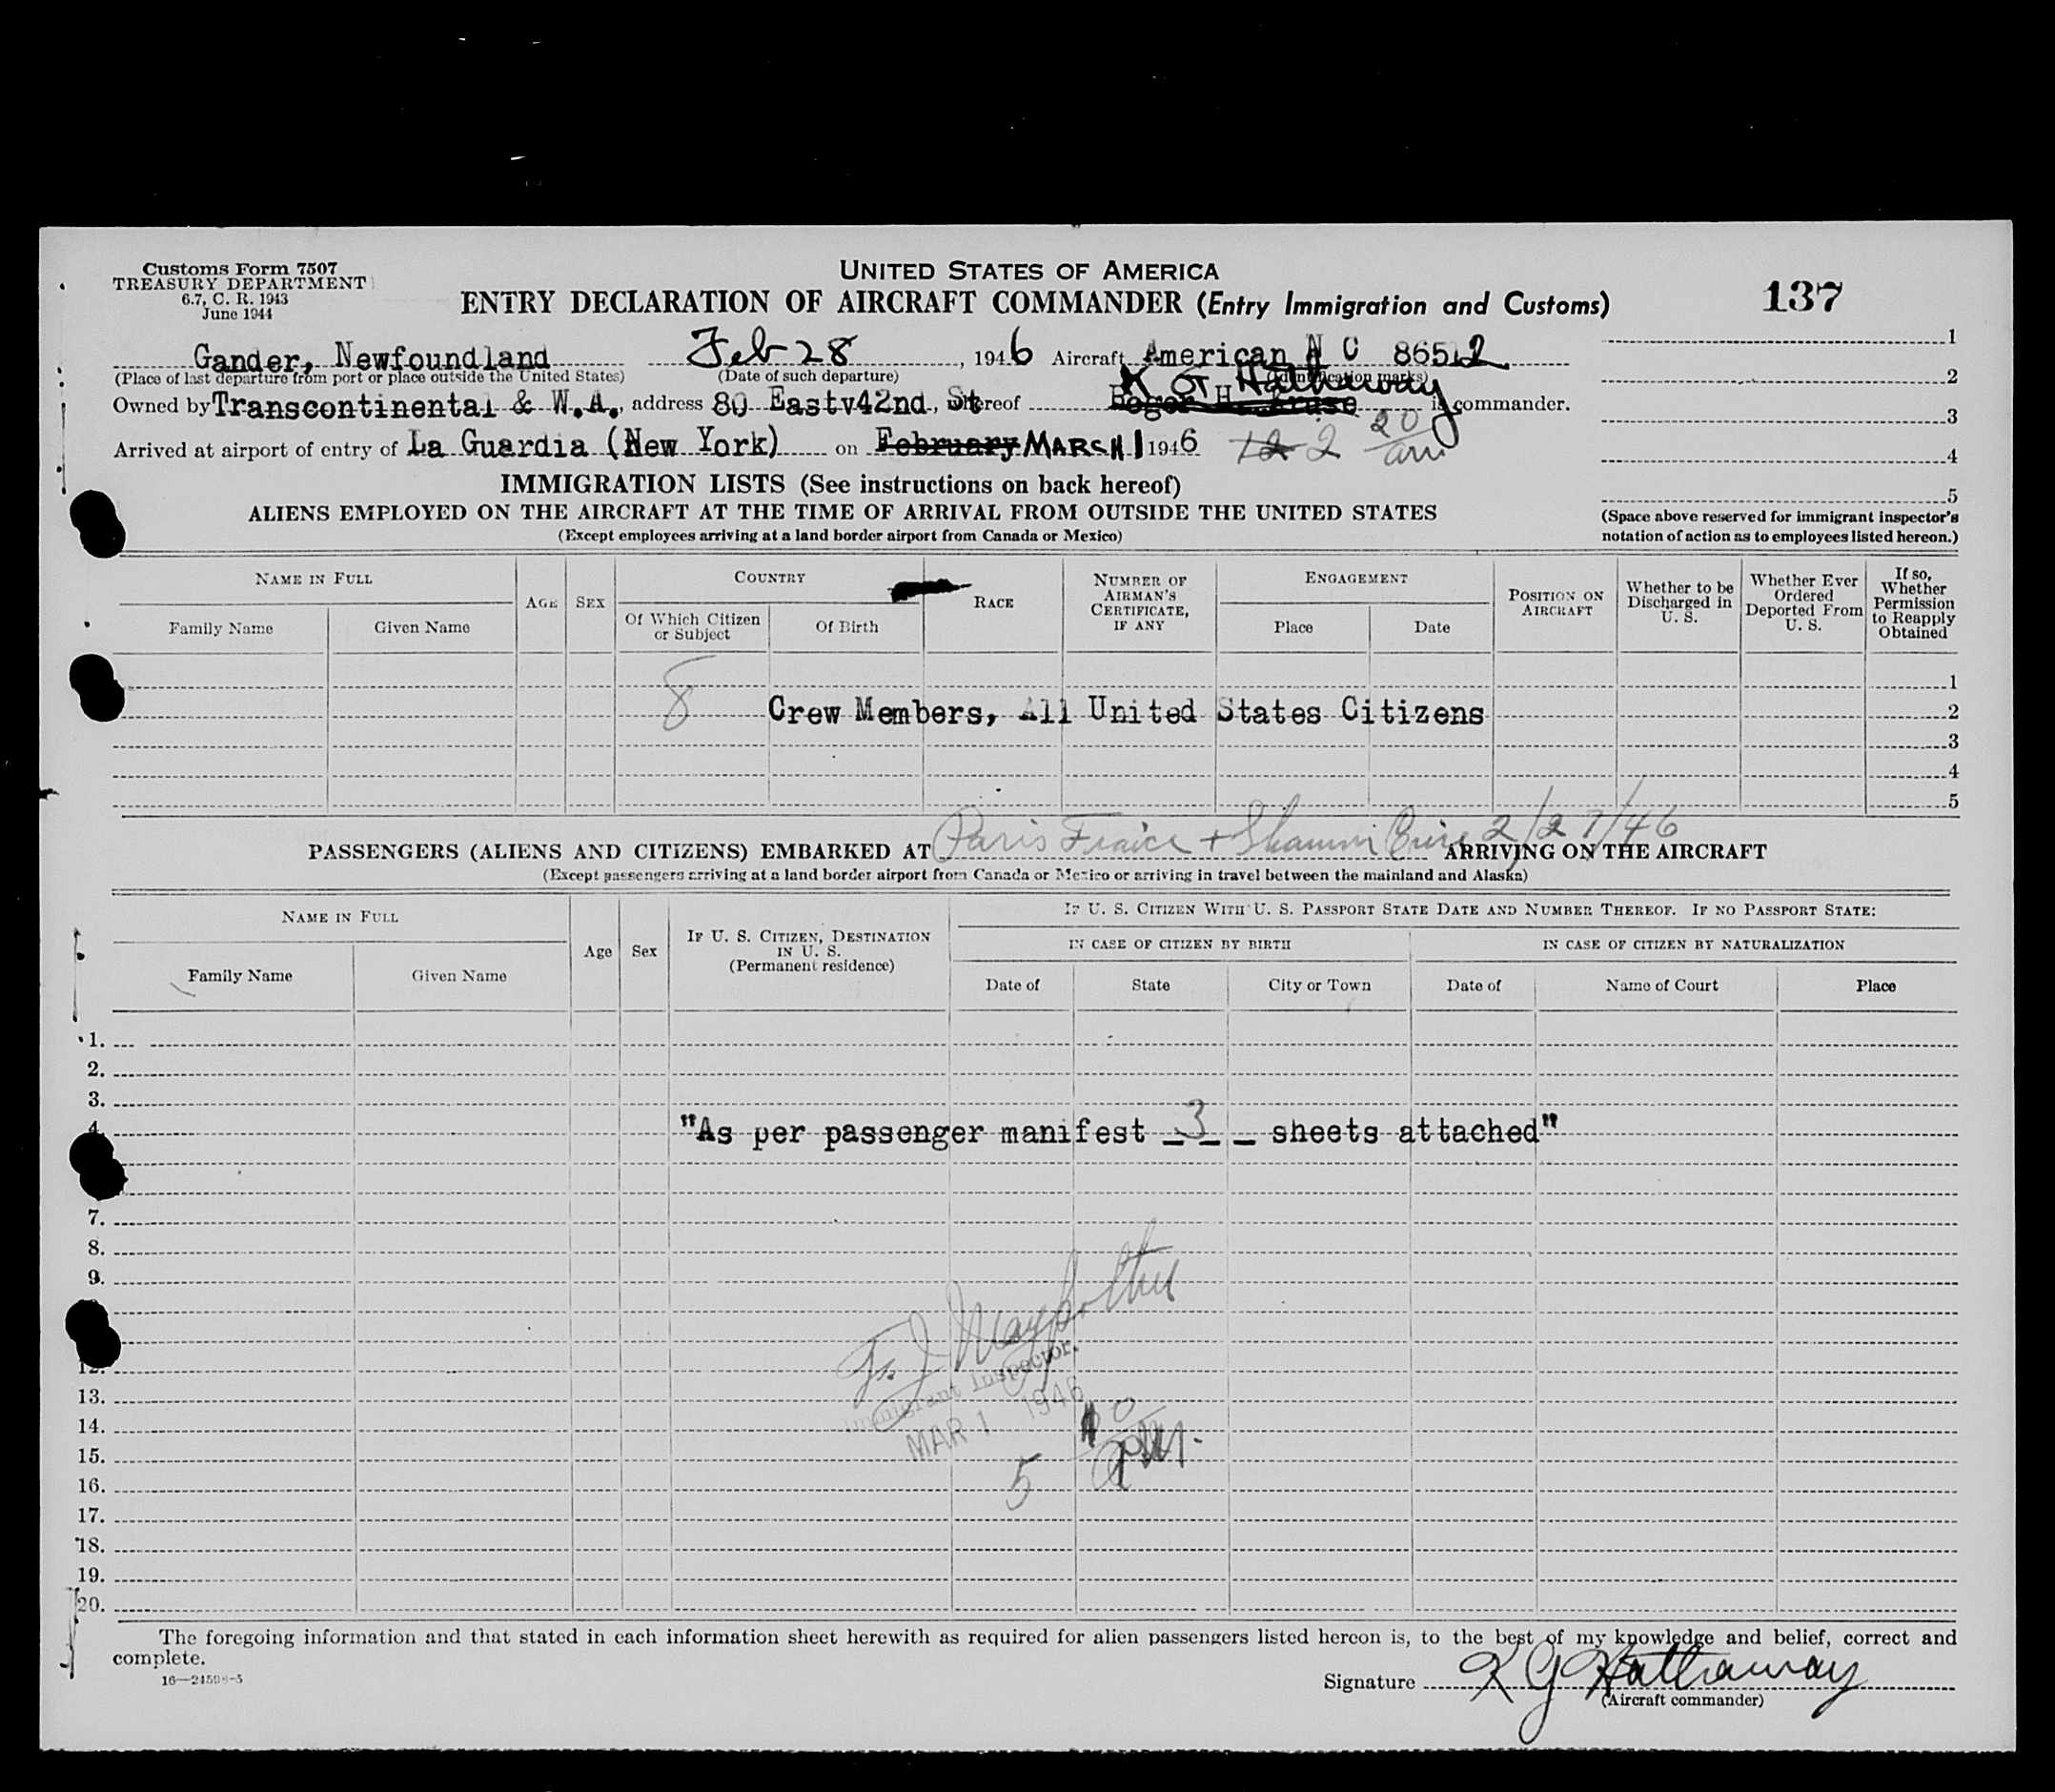 Customs Form 7507
TREASURY DEPARTMENT
6.7, C. R. 1943
June 1944
UNITED STATES OF AMERICA
ENTRY DECLARATION OF AIRCRAFT COMMANDER (Entry Immigration and Customs)
137
Gander, Newfoundland Feb 28, 1946 Aircraft American N C 86512
(Place of last departure from port or place outside the United States) (Date of such departure) (Identification marks)
K G Hathaway
Owned by Transcontinental & W.A., address 80 Eastv42nd St, whereof Roger H. Kruse is commander.
Arrived at airport of entry of La Guardia (New York) on February MARCH 1 1946 12 2 20 am
1
2
3
4
5
(Space above reserved for immigrant inspector's
notation of action as to employees listed hereon.)
IMMIGRATION LISTS (See instructions on back hereof)
ALIENS EMPLOYED ON THE AIRCRAFT AT THE TIME OF ARRIVAL FROM OUTSIDE THE UNITED STATES
(Except employees arriving at a land border airport from Canada or Mexico)
NAME IN FULL
Family Name
Given Name
AGE
SEX
COUNTRY
Of Which Citizen
or Subject
Of Birth
RACE
NUMBER OF
AIRMAN'S
CERTIFICATE,
IF ANY
ENGAGEMENT
Place
Date
POSITION ON
AIRCRAFT
Whether to be
Discharged in
U. S.
Whether Ever
Ordered
Deported From
U. S.
If so,
Whether
Permission
to Reapply
Obtained
1
8 Crew Members, All United States Citizens 2
3
4
5
PASSENGERS (ALIENS AND CITIZENS) EMBARKED AT Paris France + 2/27/46 ARRIVING ON THE AIRCRAFT
(Except passengers arriving at a land border airport from Canada or Mexico or arriving in travel between the mainland and Alaska)
NAME IN FULL
Family Name
Given Name
Age
Sex
IF U. S. CITIZEN, DESTINATION
IN U. S.
(Permanent residence)
IF U. S. CITIZEN WITH U. S. PASSPORT STATE DATE AND NUMBER THEREOF. IF NO PASSPORT STATE:
IN CASE OF CITIZEN BY BIRTH
IN CASE OF CITIZEN BY NATURALIZATION
Date of
State
City or Town
Date of
Name of Court
Place
1.
2.
3.
4. "As per passenger manifest _3_ _ sheets attached"
7.
8.
9.
12.
13.
14.
15.
16.
17.
18.
19.
20.
Immigrant Inspector.
MAR 1 1946
5 PM.
The foregoing information and that stated in each information sheet herewith as required for alien passengers listed hereon is, to the best of my knowledge and belief, correct and
complete.
Signature K G Hathaway
(Aircraft commander)